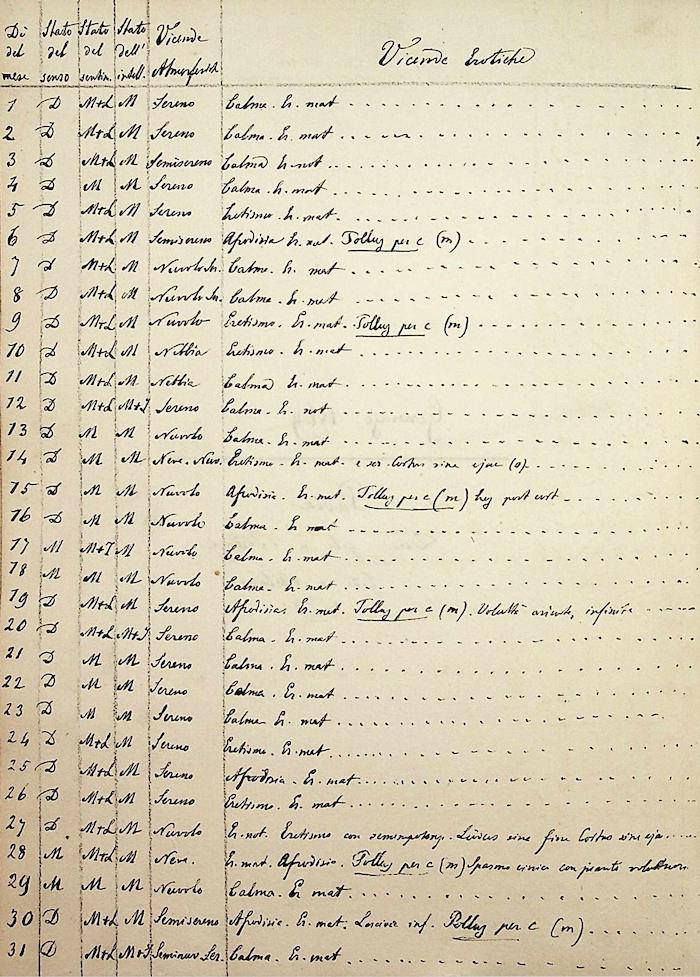 Dì del mese Stato del senso Stato del sentim. Stato dell' intell. Vicende Atmosferich Vicende Erotiche
1 D M+L M Sereno Calma. Er. mat
2 D M+L M Sereno Calma. Er. mat
3 D M+L M Semisereno Calma Er. not
4 D M M Sereno Calma. Er. mat
5 D M+L M Sereno Eretismo. Er. mat.
6 D M+L M Semisereno Afrodisia Er. mat. Polluz per c (m)
7 D M+L M Nuvolo Calma. Er. mat
8 D M+L M Nuvolo Calma. Er. mat
9 D M+L M Nuvolo Eretismo. Er. mat. Polluz per c (m)
10 D M+L M Nebbia Eretismo. Er. mat
11 D M+L M Nebbia Calma Er. mat
12 D M+L M+I Sereno Calma. Er. not
13 D M M Nuvolo Calma. Er. mat
14 D M M Neve. Nuv. Eretismo. Er. mat. e ser Coitus sine ejac (o)
15 D M M Nuvolo Afrodisia. Er. mat. Polluz per c (m) post coit
16 D M M Nuvolo Calma. Er. mat
17 M M+I M Nuvolo Calma. Er. mat
18 M M M Nuvolo Calma. Er. mat
19 D M+L M Sereno Afrodisia. Er. mat. Polluz per c (m). Voluttà infinita
20 D M+L M+I Sereno Calma. Er. mat
21 D M M Sereno Calma. Er. mat
22 D M M Sereno Calma. Er. mat
23 D M M Sereno Calma Er. mat
24 D M+L M Sereno Eretismo. Er. mat
25 D M+L M Sereno Afrodisia. Er. mat
26 D M+L M Sereno Eretismo. Er. mat
27 D M+L M Nuvolo Er. not. Eretismo con sine fine Coitus sine eja
28 M M+L M Neve. Er. mat. Afrodisia. Polluz per c (m) Spasmo cinica con
29 M M M Nuvolo Calma. Er. mat
30 D M+L M Semisereno Afrodisia. Er. mat. Lascivia inf. Polluz per c (m)
31 D M+L M+I Seminuv. Ser. Calma. Er. mat